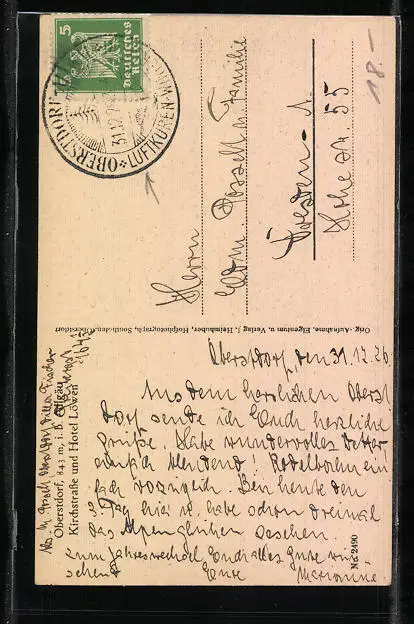 5
Deutsches
Reich
OBERSTDORF
31.12.2
LUFTKUR
18.-
Herrn
u. Familie
Dresden - A.
Hohe str. 55
Org.-Aufnahme, Eigentum u. Verlag J. Heimhuber, Hofphotograph, Sonthofen/Oberstdorf
Oberstdorf, 843 m, i. b. Allgäu
Kirchstraße und Hotel Löwen
No 2490
Oberstdorf, den 31.12.26.
Aus dem herrlichen Oberst
dorf sende ich Euch herzliche
Grüße. Habe wundervolles Wetter
einfach blendend! Rodelbahn ein
fach vorzüglich. Bin heute den
3. Tag hier u. habe schon dreimal
das Alpenglühen gesehen.
Zum Jahreswechsel Euch alles Gute wün
schend Eure Marianne